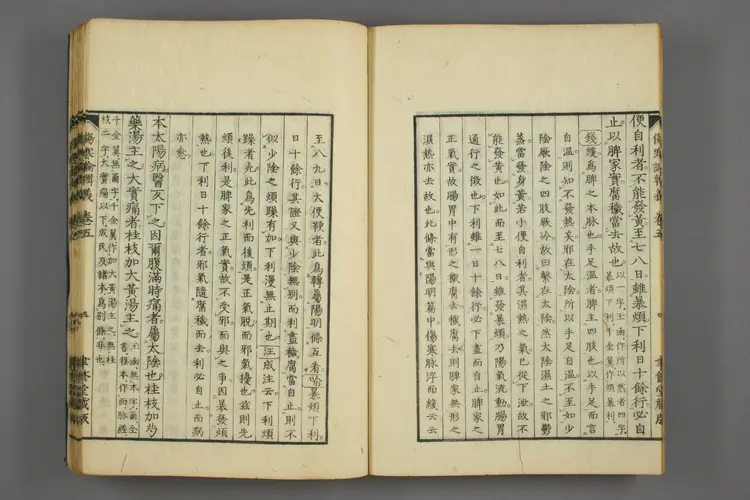 便自利者不能發黃至七八日雖暴煩下利日十餘行必自
止以脾家實腐穢當去故也
錢緩爲脾之本脉也手足溫者脾主四肢也以手足而言
自溫則知不發熱矣邪在太陰所以手足自溫不至如少
陰厥陰之四肢厥冷故曰繫在太陰然太陰濕土之邪鬱
蒸當發身黃若小便自利者其濕熱之氣已從下泄故不
能發黃也如此而至七八日雖發暴煩乃陽氣流動腸胃
通行之徵也下利雖一日十餘行必下盡而自止脾家之
正氣實故腸胃中有形之穢腐去穢腐去則脾家無形之
濕熱亦去故也此條當與陽明篇中傷寒脉浮而緩云云
至八九日大便鞕者此爲轉屬陽明條互看喻暴煩下利
日十餘行其證又與少陰無別而利盡穢腐當自止則不
似少陰之煩躁有加下利漫無止期也汪成注云下利煩
躁者死此爲先利而後煩是正氣脫而邪氣擾也玆則先
煩後利是脾家之正氣實故不受邪而與之爭因暴發煩
熱也下利日十餘行者邪氣隨腐穢而去利必自止而病
亦愈
本太陽病醫反下之因爾腹滿時痛者屬太陰也桂枝加芍
藥湯主之大實痛者桂枝加大黃湯主之
傷寒論輯義 卷五